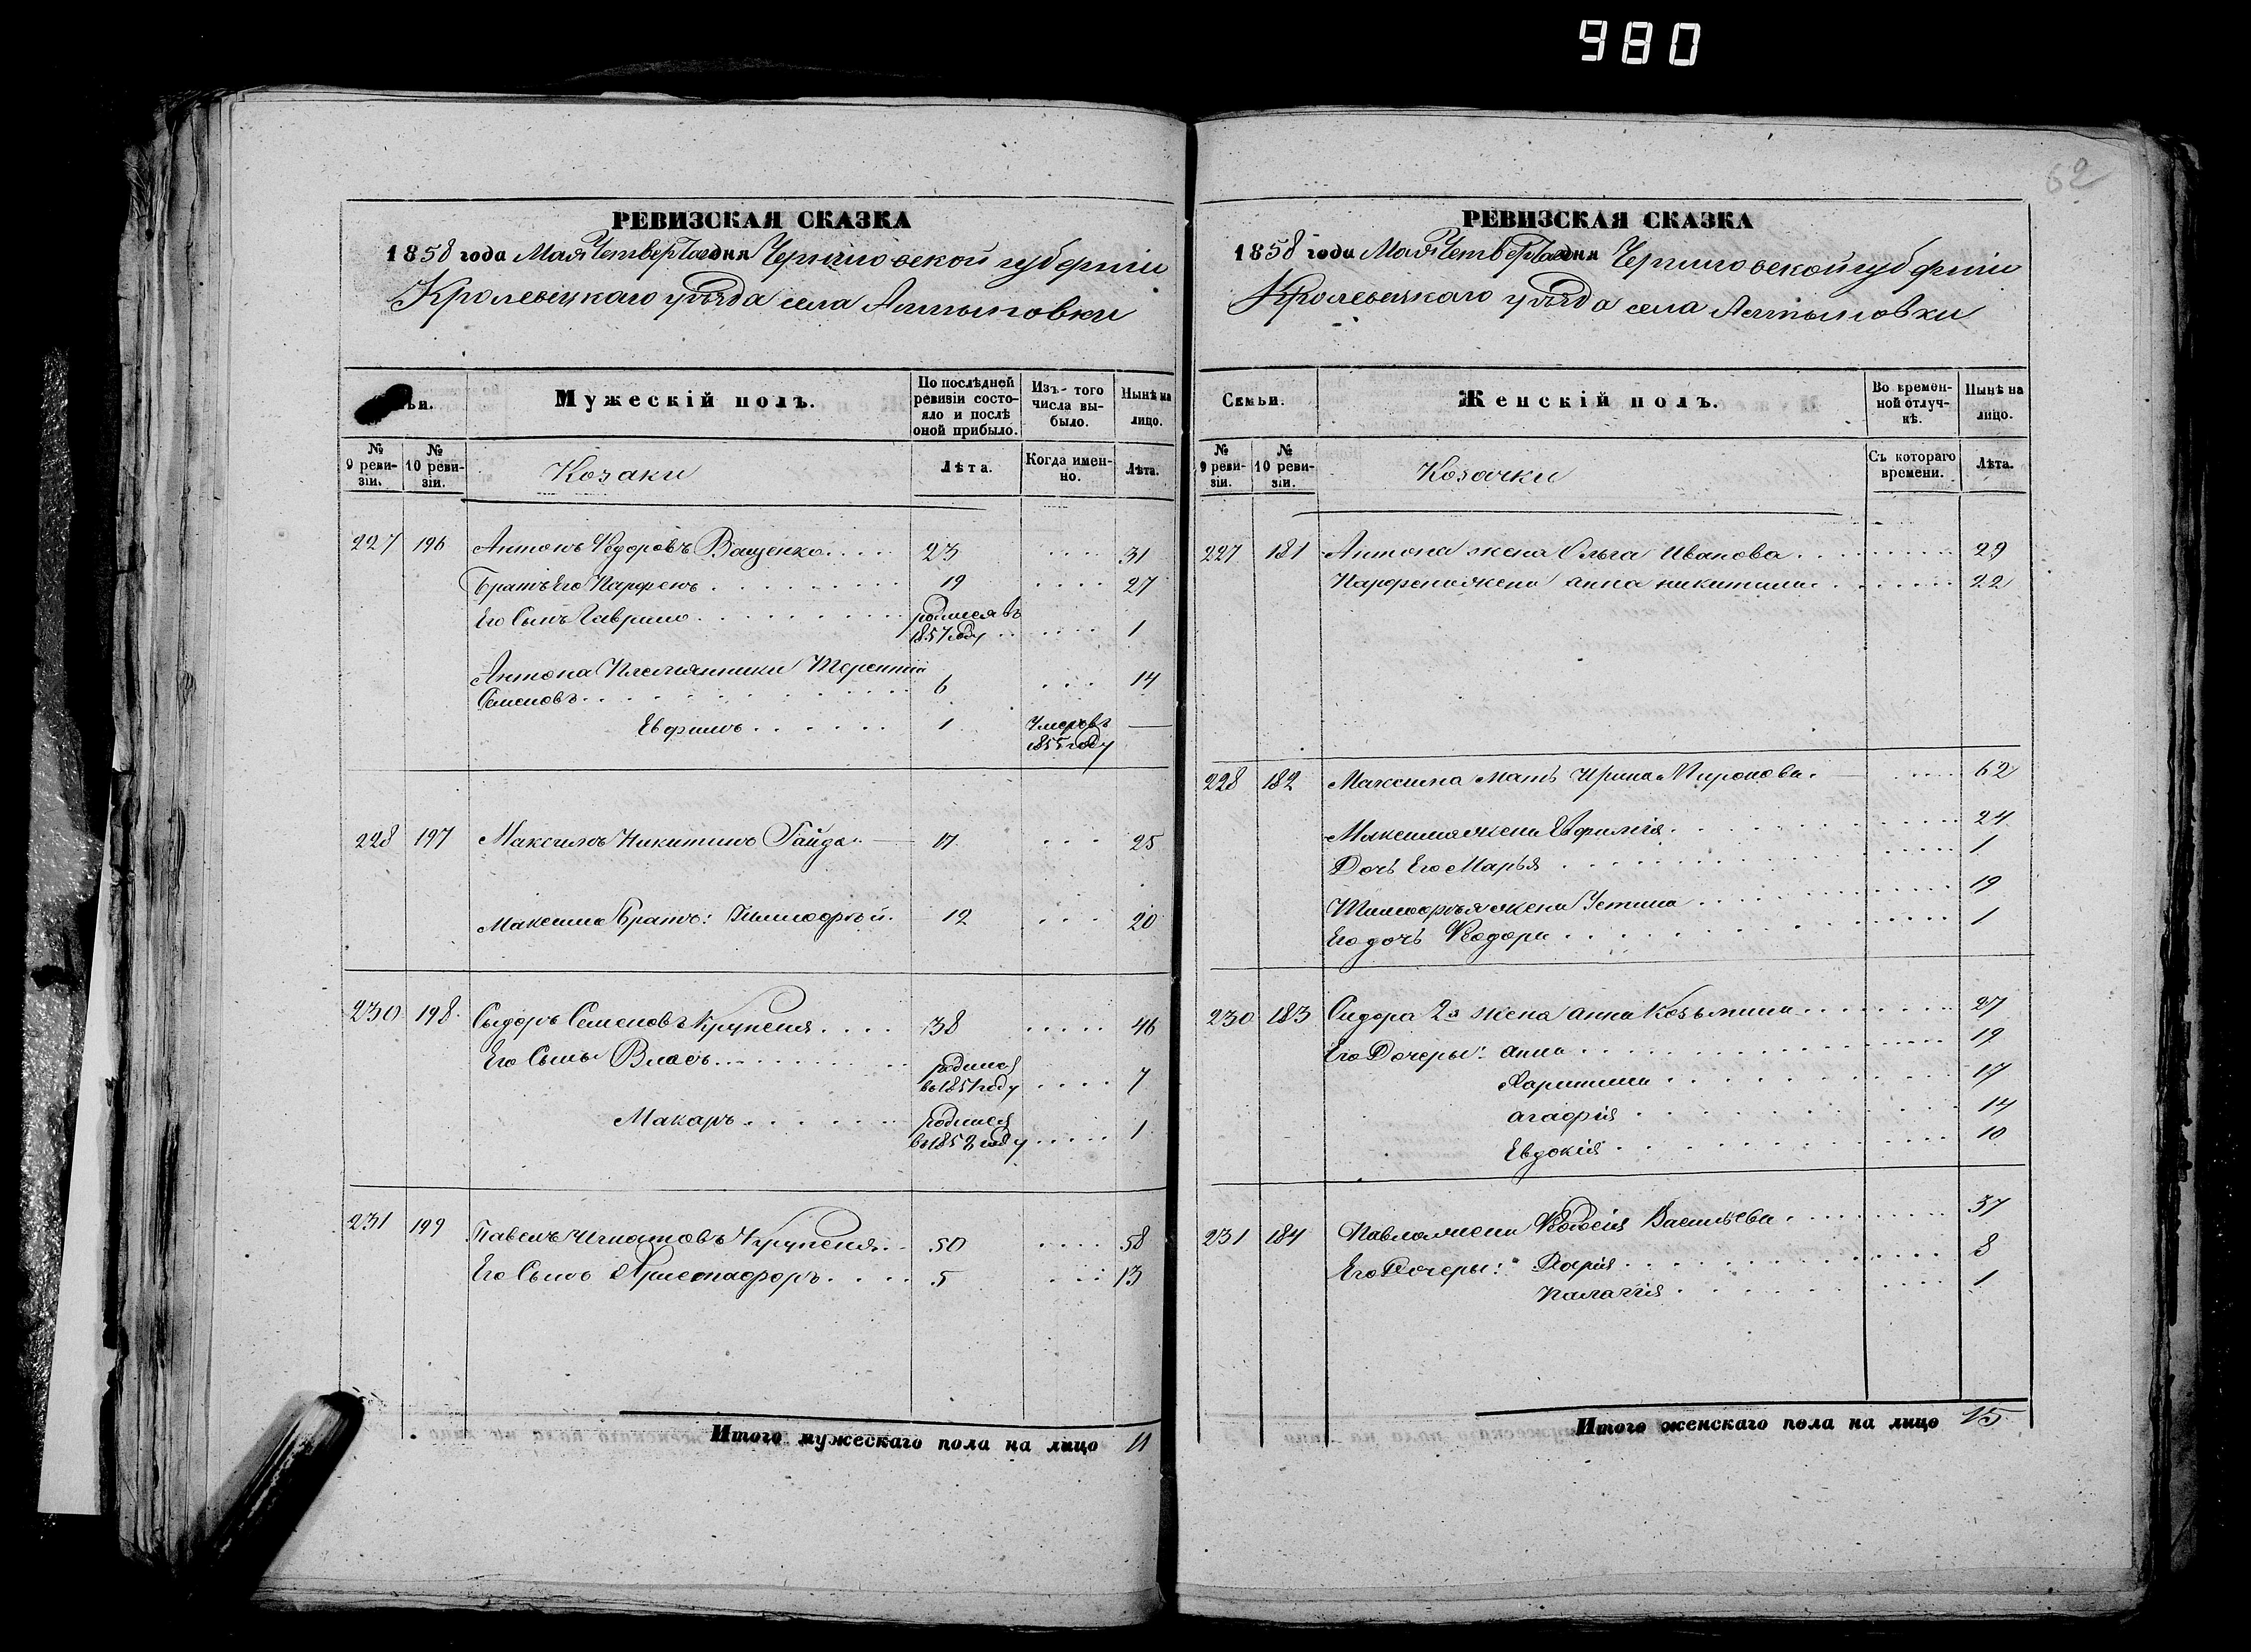 980
62
РЕВИЗСКАЯ СКАЗКА
1858 года Мая Четвертаго дня Черниговской губерніи
Кролевецкаго уѣзда села Алтыновки
Мужескій полъ.
По послѣдней ревизіи состояло и послѣ оной прибыло.
Изъ того числа выбыло.
Нынѣ на лицо.
№ 9 ревизіи.
№ 10 ревизіи.
Козаки
Лѣта.
Когда именно.
Лѣта.
227 196 Антонъ Федоровъ Ващенко 23 31
Братъ Его Парфенъ 19 27
Его Сынъ Гаврило родился въ 1857 году 1
Антона Племянники Терентій
Семеновъ 6 14
Евфимъ 1 Умеръ въ 1855 году —
228 197 Максимъ Никитинъ Гайда 17 25
Максима Братъ: Тимофѣй 12 20
230 198 Сыдоръ Семеновъ Крупеня 38 46
Его Сыны Власъ родился въ 1851 году 7
Макаръ родился въ 1858 году 1
231 199 Павелъ Игнатовъ Крупеня 50 58
Его Сынъ Христофоръ 5 13
Итого мужескаго пола на лицо 11
РЕВИЗСКАЯ СКАЗКА
1858 года Мая Четвертаго дня Черниговской губерніи
Кролевецкаго уѣзда села Алтыновки
Семьи.
Женскій полъ.
Во временной отлучкѣ.
Нынѣ на лицо.
№ 9 ревизіи.
№ 10 ревизіи.
Козачки
Съ котораго времени.
Лѣта.
227 181 Антона жена Ольга Иванова 29
Парфена жена Анна Никитина 22
228 182 Максима мать Ирина Миронова 62
Максима жена Евфимія 24
Дочь Его Марья 1
Тимофѣя жена Устина 19
Его дочь Федора 1
230 183 Сидора 2я жена Анна Козьмина 27
Его Дочеры: Анна 19
Харитина 17
Агафія 14
Евдокія 10
231 184 Павла жена Феодосія Васильева 37
Его Дочеры: Дарія 8
Палагія 1
Итого женскаго пола на лицо 15